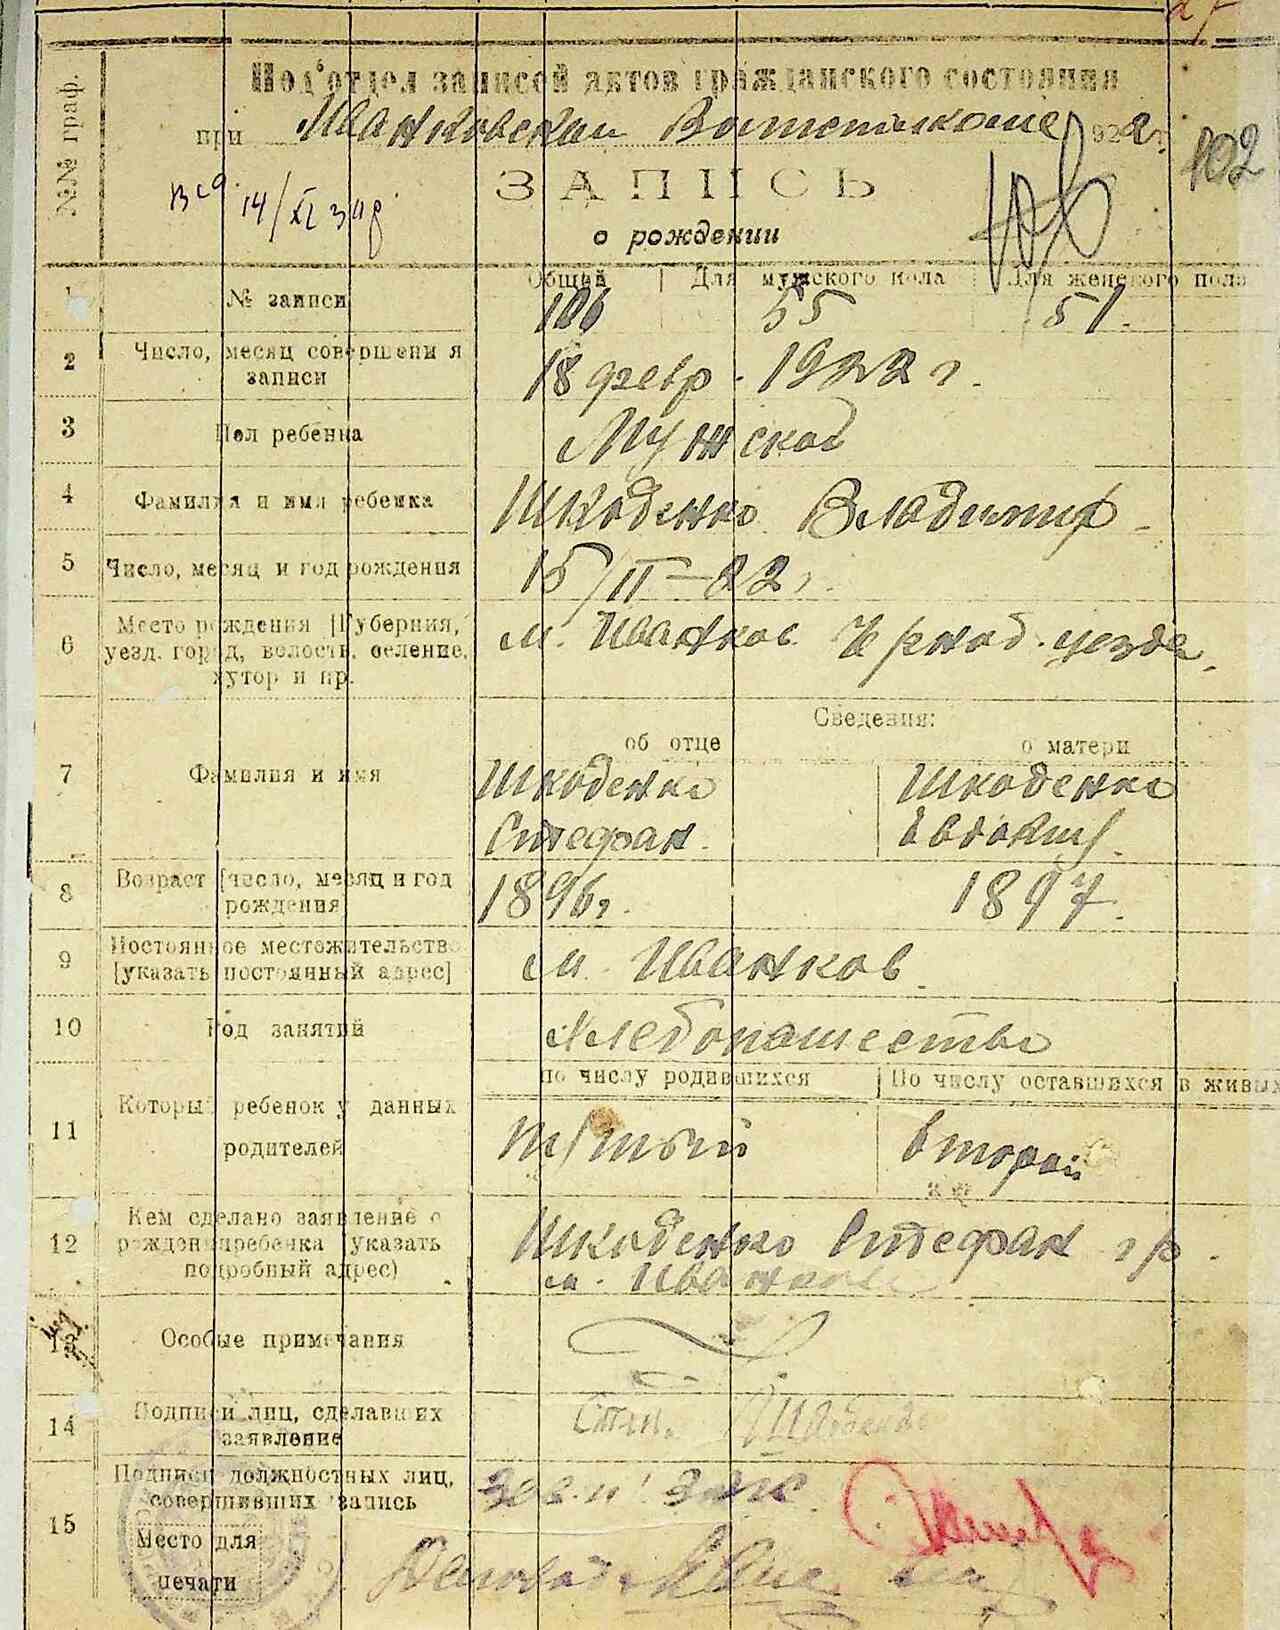 №№ граф.
Под'отдел записей актов гражданского состояния
при Иванковском Волисполкоме 1922 г.
102
14/XI
ЗАПИСЬ
о рождении
Общий | Для мужского пола | Для женского пола
1 № записи 106 55 51.
2 Число, месяц совершения записи 18 февр. 1922 г.
3 Пол ребенка Мужской
4 Фамилия и имя ребенка Шкоденко Владимир
5 Число, месяц и год рождения 15/II–22 г.
6 Место рождения [Губерния, уезд, город, волость, селение, хутор и пр. м. Иванков Черноб. уезда.
Сведения:
об отце о матери
7 Фамилия и имя Шкоденко Шкоденко
Стефан. Евдокия.
8 Возраст [число, месяц и год рождения 1896 г. 1897.
9 Постоянное местожительство [указать постоянный адрес] м. Иванков.
10 Род занятий хлебопашество
по числу родившихся | По числу оставшихся в живых
11 Который ребенок у данных родителей третий второй
12 Кем сделано заявление о рождении ребенка (указать подробный адрес) Шкоденко Стефан гр.
м. Иванков
13 Особые примечания
14 Подписи лиц, сделавших заявление Степ. Шкоденко
15 Подписи должностных лиц, совершивших запись
Место для печати